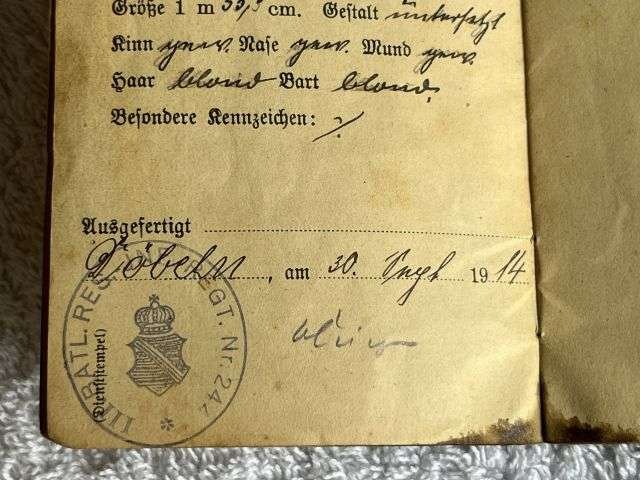 Größe 1 m cm. Gestalt untersetzt
Kinn gew. Nase gew. Mund gew.
Haar blond Bart blond.
Besondere Kennzeichen: ./.
Ausgefertigt
Döbeln, am 30. Sept 1914
(Dienststempel)
BATL. RES. REGT. Nr. 244